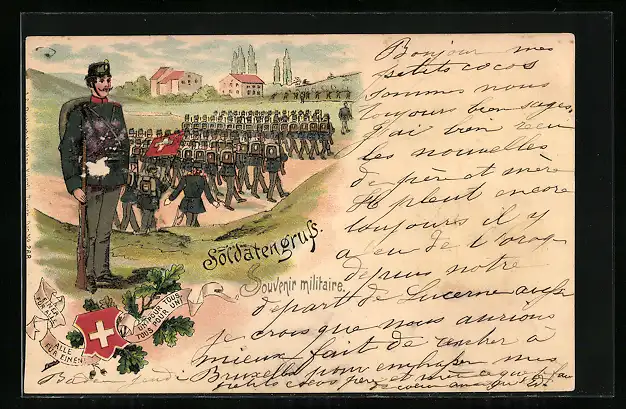 Bonjour mes
petits cocos
Sommes nous
toujours bien sages,
j'ai bien recu
les nouvelles
de père et mère
Il pleut encore
toujours il y
a eu de l'orage
depuis notre
départ de Lucerne aussi
je crois que nous aurions
mieux fait de rester à
Bruxelles pour embrasser mes
petits cocos père et mère
Baden jeudi
Soldatengruß.
Souvenir militaire.
EINER
FÜR ALLE
ALLE
FÜR EINEN
UN POUR TOUS
TOUS POUR UN